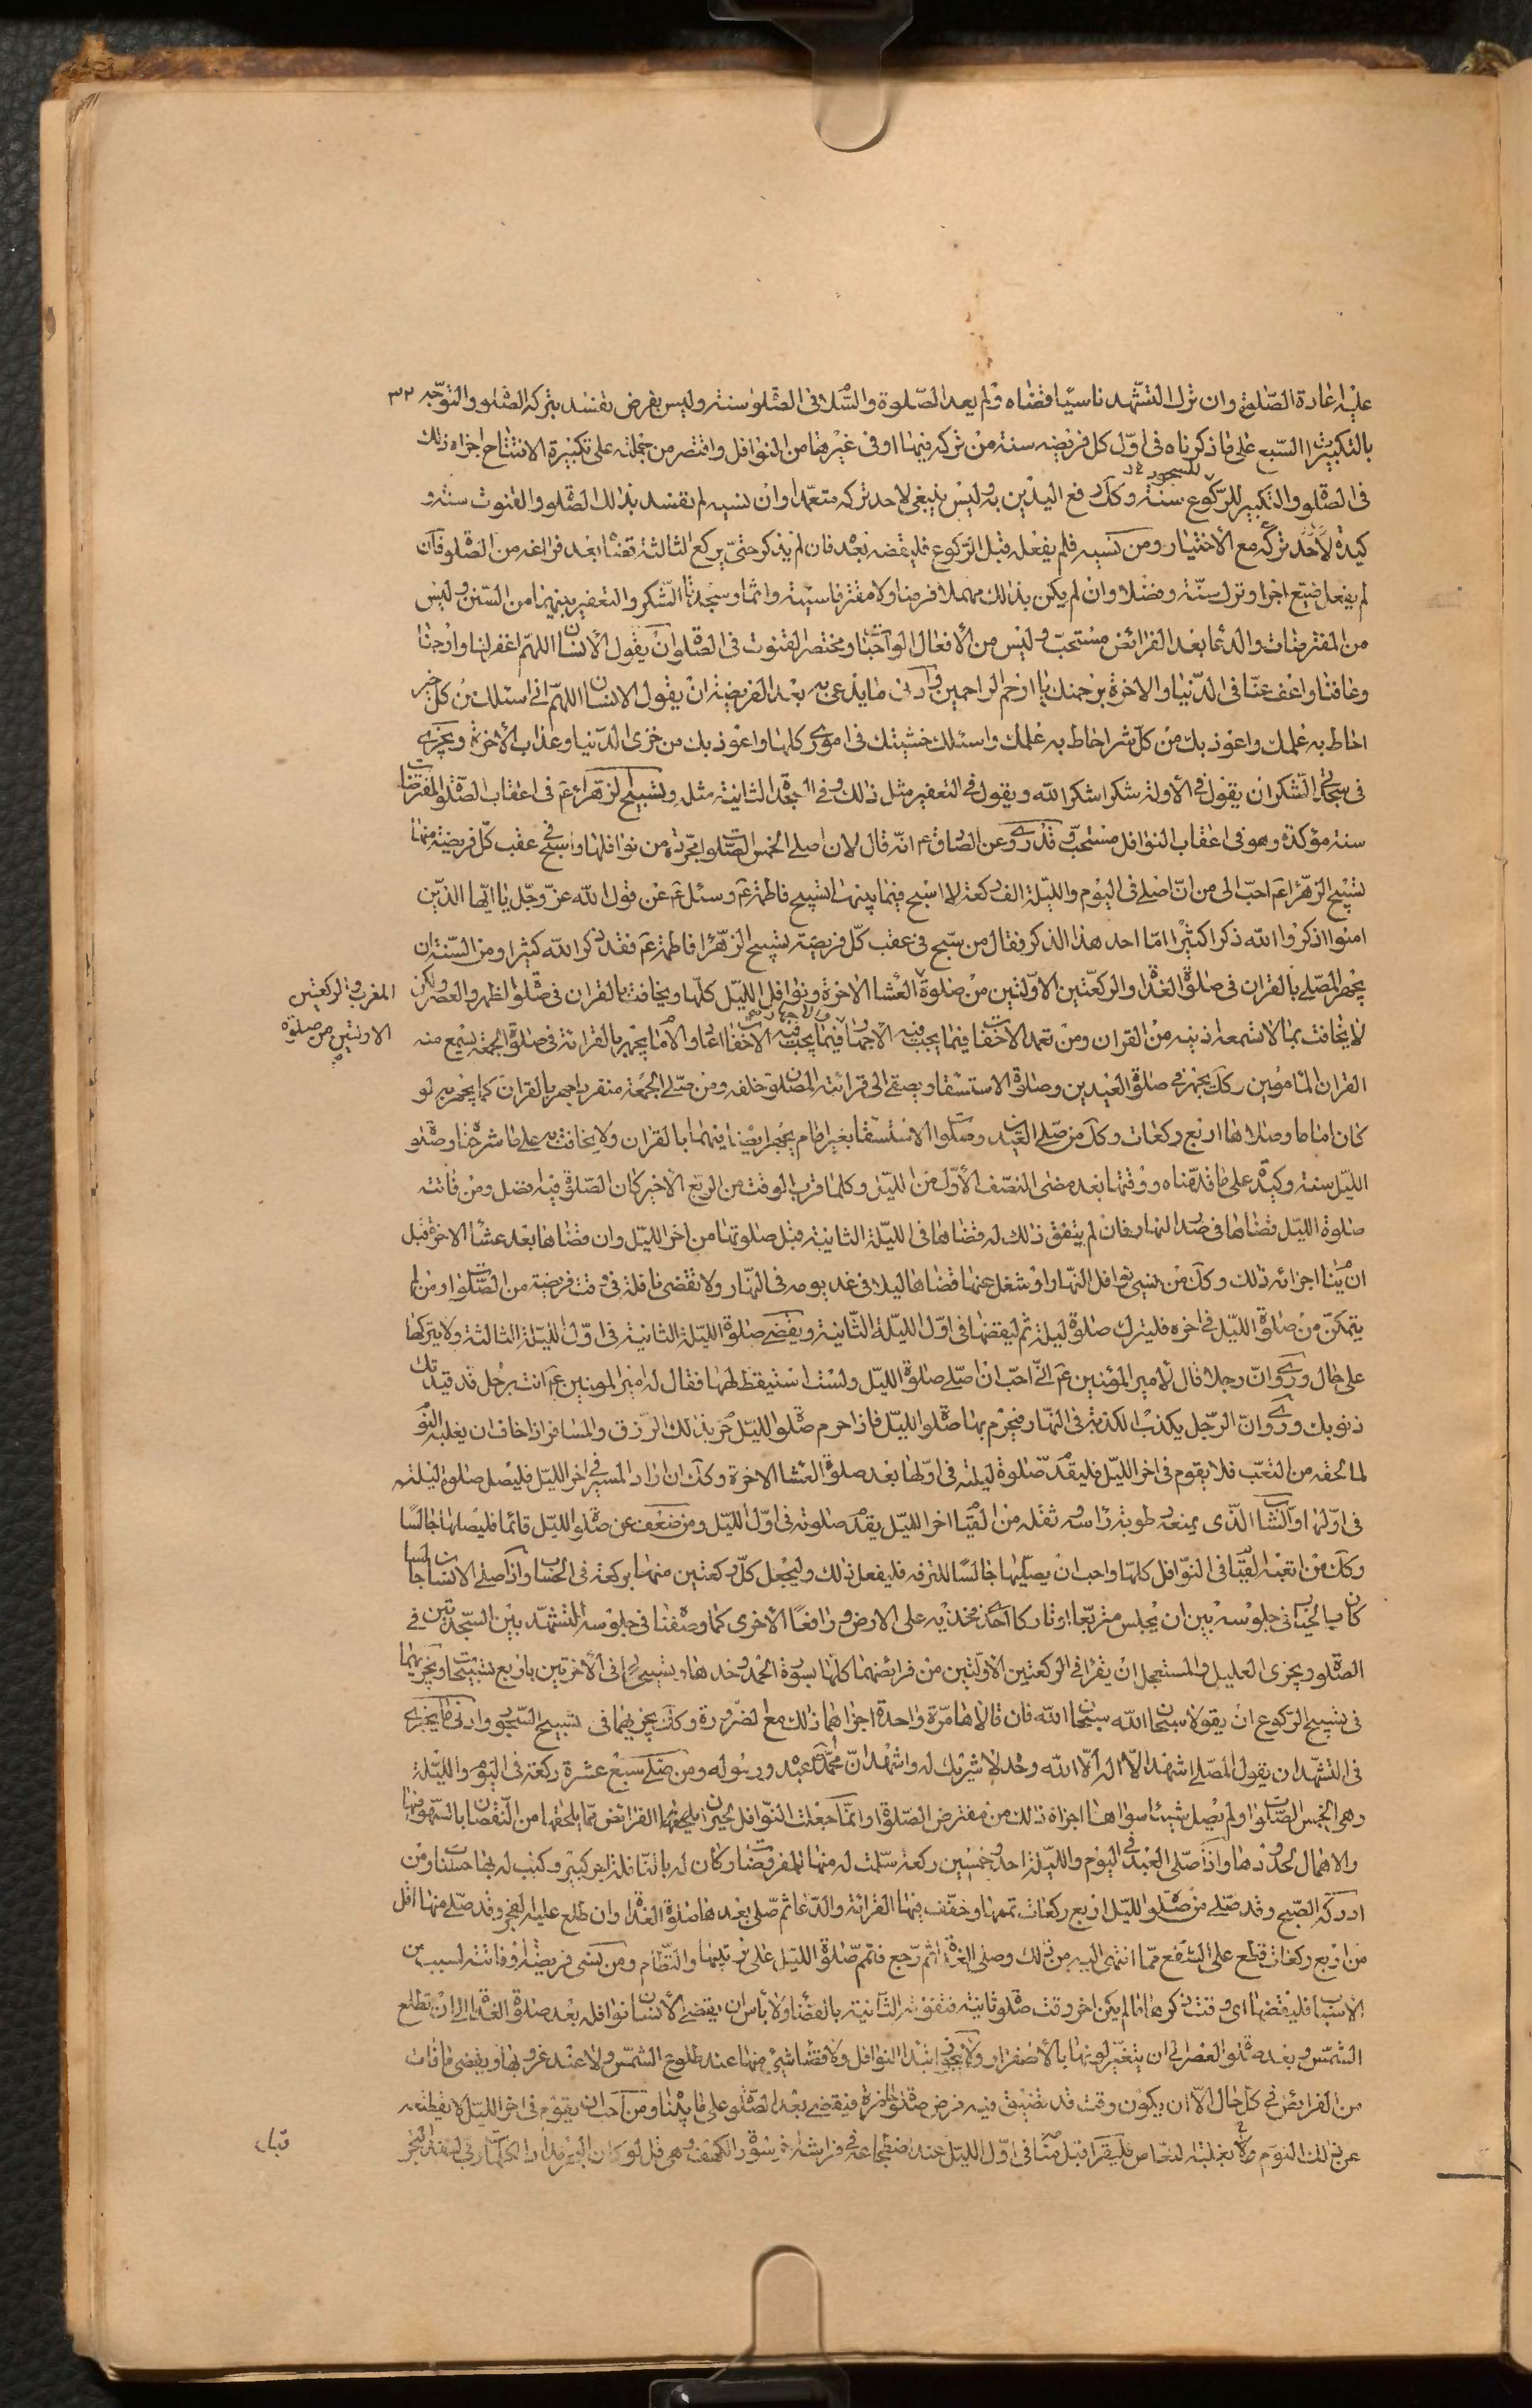 عليه اعادة الصلوة وان ترك التشهد ناسيا قضاه ولم يعد الصلوة والسلام فى الصلوة سنة وليس بفرض تفسد بتركه الصلوة والتوجه ٣٢
بالتكبيرات السبع على ما ذكرناه فى اول كل فريضه سنة من تركه فيها او فى غيرها من النوافل واقتصر من جملته على تكبيرة الافتتاح اجزاه ذلك
فى الصلوة والتكبير للركوع وللسجود سنة وكك رفع اليدين به وليس ينبغى لاحد تركه متعمدا وان نسيه لم تفسد بذلك الصلوة والقنوت سنة و
كيدة لا احد تركه مع الاختيار ومن نسيه فلم يفعله قبل الركوع فليقضه بعده فان لم يذكر حتى يركع الثالثة قضاه بعد فراغه من الصلوة فان
لم يفعل ضيع اجرا وترك سنة وفضلا وان لم يكن بذلك مهملا فرضا ولا مقترفا سيئة واثما وسجدتا الشكر والتعفير بينهما من السنن وليس
من المفترضات والدعا بعد الفرائض مستحب وليس من الافعال الواجبات ومختصر القنوت فى الصلوة ان يقول الانسان اللهم اغفر لنا وارحمنا
وعافنا واعف عنا فى الدنيا والاخرة برحمتك يا ارحم الراحمين وادنى ما يدعى به بعد الفريضة ان يقول الانسان اللهم انى اسئلك من كل خير
احاط به علمك واعوذ بك من كل شر احاط به علمك واسئلك خشيتك فى امورى كلها واعوذ بك من خزى الدنيا وعذاب الاخرة ويجزى
فى سجدتى الشكر ان يقول فى الاولة شكرا شكرا لله ويقول فى التعفير مثل ذلك وفى السجدة الثانية مثله وتسبيح الزهراء ع فى اعقاب الصلوات المفترضات
سنة مؤكدة وهو فى اعقاب النوافل مستحب وقد روى عن الصادق ع انه قال لان اصلى الخمس الصلوات مجردة من نوافلها واسبح فى عقب كل فريضة منها
تسبيح الزهراء ع احب الى من ان اصلى فى اليوم والليلة الف ركعة لا اسبح فيما بينها تسبيح فاطمة ع وسئل ع عن قول الله عز وجل يا ايها الذين
امنوا اذكروا الله ذكرا كثيرا ما احد هذا الذكر فقال من سبح فى عقب كل فريضة تسبيح الزهرا فاطمة ع فقد ذكر الله كثيرا ومن السنة ان
يجهر المصلى بالقران فى صلوة الغداة والركعتين الاولتين من صلوة العشا الاخرة ونوافل الليل كلها ويخافت بالقران فى صلوة الظهر والعصر ولكن
المغرب والركعتين
الاولتين من صلوة
لا يخافت بما لا تسمعه اذنيه من القران ومن تعمد الاخفات فيما يجب فيه الاجهار والاجهار فيما يجب فيه الاخفات اعاد والامام يجهر بالقرائة فى صلوة الجمعة ليسمع منه
القران المأمومين وكك يجهر فى صلوة العيدين وصلوة الاستسقا ويصغى الى قرائته المصلون خلفه ومن صلى الجمعة منفردا جهر بالقران كما يجهر به لو
كان اماما وصلاها اربع ركعات وكك من صلى العيد وصلوة الاستسقا بغير امام يجهر ايضا فيهما بالقران ولا يخافت به على ما شرحناه وصلوة
الليل سنة وكيدة على ما قدمناه ووقتها بعد مضى النصف الاول من الليل وكلما قرب الوقت من الربع الاخير كان الصلوة فيه افضل ومن فاتته
صلوة الليل قضاها فى صدر النهار فان لم يتفق ذلك له قضاها فى الليلة الثانية قبل صلوتها من اخر الليل وان قضاها بعد عشا الاخرة قبل
ان ينام اجزائه ذلك وكك من نسى نوافل النهار او شغل عنها قضاها ليلا او فى غد يومه فى النهار ولا تقضى نافلة فى وقت فريضة من الصلوات ومن لم
يتمكن من صلوة الليل فى اخره فليترك صلوة ليلة ثم ليقضها فى اول الليلة الثانية ويقضى صلوة الليلة الثانية فى اول الليلة الثالثة ولا يتركها
على حال وروى ان رجلا قال لامير المؤمنين ع انى احب ان اصلى صلوة الليل ولست استيقظ لها فقال له امير المؤمنين ع انت رجل قد قيدتك
ذنوبك وروى ان الرجل يكذب الكذبة فى النهار فيحرم بها صلوة الليل فاذا حرم صلوة الليل حرم بذلك الرزق والمسافر اذا خاف ان يغلبه النوم
لما لحقه من التعب فلا يقوم فى اخر الليل فليقدم صلوة ليلته فى اولها بعد صلوة العشا الاخرة وكك ان اراد المسير فى اخر الليل فليصل صلوة ليلته
فى اولها والشاب الذى يمنعه رطوبة راسه وثقله من القيام اخر الليل يقدم صلوته فى اول الليل ومن ضعف عن صلوة الليل قائما فليصلها جالسا
وكك من اتعبه القيام فى النوافل كلها واحب ان يصليها جالسا للترفه فليفعل ذلك وليجعل كل ركعتين منها بركعة فى الحساب واذا صلى الانسان جالسا
كان بالخيار فى جلوسه بين ان يجلس متربعا او تاركا احد فخذيه على الارض ورافعا الاخرى كما وصفنا فى جلوسه للتشهد بين السجدتين فى
الصلوة ويجزى العليل والمستعجل ان يقرا فى الركعتين الاولتين من فرائضهما كلها بسورة الحمد وحدها وتسبيح فى الاخرتين باربع تسبيحات ويجزيهما
فى تسبيح الركوع ان يقولا سبحان الله سبحان الله فان قالاها مرة واحدة اجزاهما ذلك مع الضرورة وكك يجزيهما فى تسبيح السجود وادنى ما يجزى
فى التشهد ان يقول المصلى اشهد ان لا اله الا الله وحده لا شريك له واشهد ان محمدا عبده ورسوله ومن صلى سبع عشرة ركعة فى اليوم والليلة
وهى الخمس الصلوات ولم يصل شيئا سواها اجزاه ذلك من مفترض الصلوة وانما جعلت النوافل لجبران ما يلحق الفرائض مما يلحقها من النقصان بالسهو فيها
والاهمال لحدودها واذا صلى العبد فى اليوم والليلة احد وخمسين ركعة سلمت له منها المفروضات وكان له باثنا فلة اجر كبير وكتب له بها حسنات ومن
ادركه الصبح وقد صلى من صلوة الليل اربع ركعات تممها وخفف فيها القرائة والدعا ثم صلى بعدها صلوة الغداة وان طلع عليه الفجر وقد صلى منها اقل
من اربع ركعات قطع على الشفع مما انتهى اليه من ذلك وصلى الغداة ثم رجع فتمم صلوة الليل على ترتيبها والنظام ومن نسى فريضة او فاتته لسبب من
الاسباب فليقضها اى وقت ذكرها ما لم يكن اخر وقت صلوة ثانية فتفوته الثانية بالقضا ولا باس ان يقضى الانسان نوافله بعد صلوة الغداة الى ان تطلع
الشمس وبعد صلوة العصر الى ان يتغير لونها بالاصفرار ولا يجوز ابتدا النوافل ولا قضا شىء منها عند طلوع الشمس ولا عند غروبها ويقضى ما فات
من الفرائض فى كل حال الا ان يكون وقت قد تضيق فيه فرض صلوة حاضرة فيقضى بعد الصلوة على ما بيناه ومن احب ان يقوم فى اخر الليل لا يقطعه
عن ذلك النوم ولا يغلبه النعاس فليقرا قبل منامه فى اول الليل عند اضطجاعه فى فراشه اخر سورة الكهف وهى قل لو كان البحر مدادا لكلمات ربى لنفد البحر
قبل